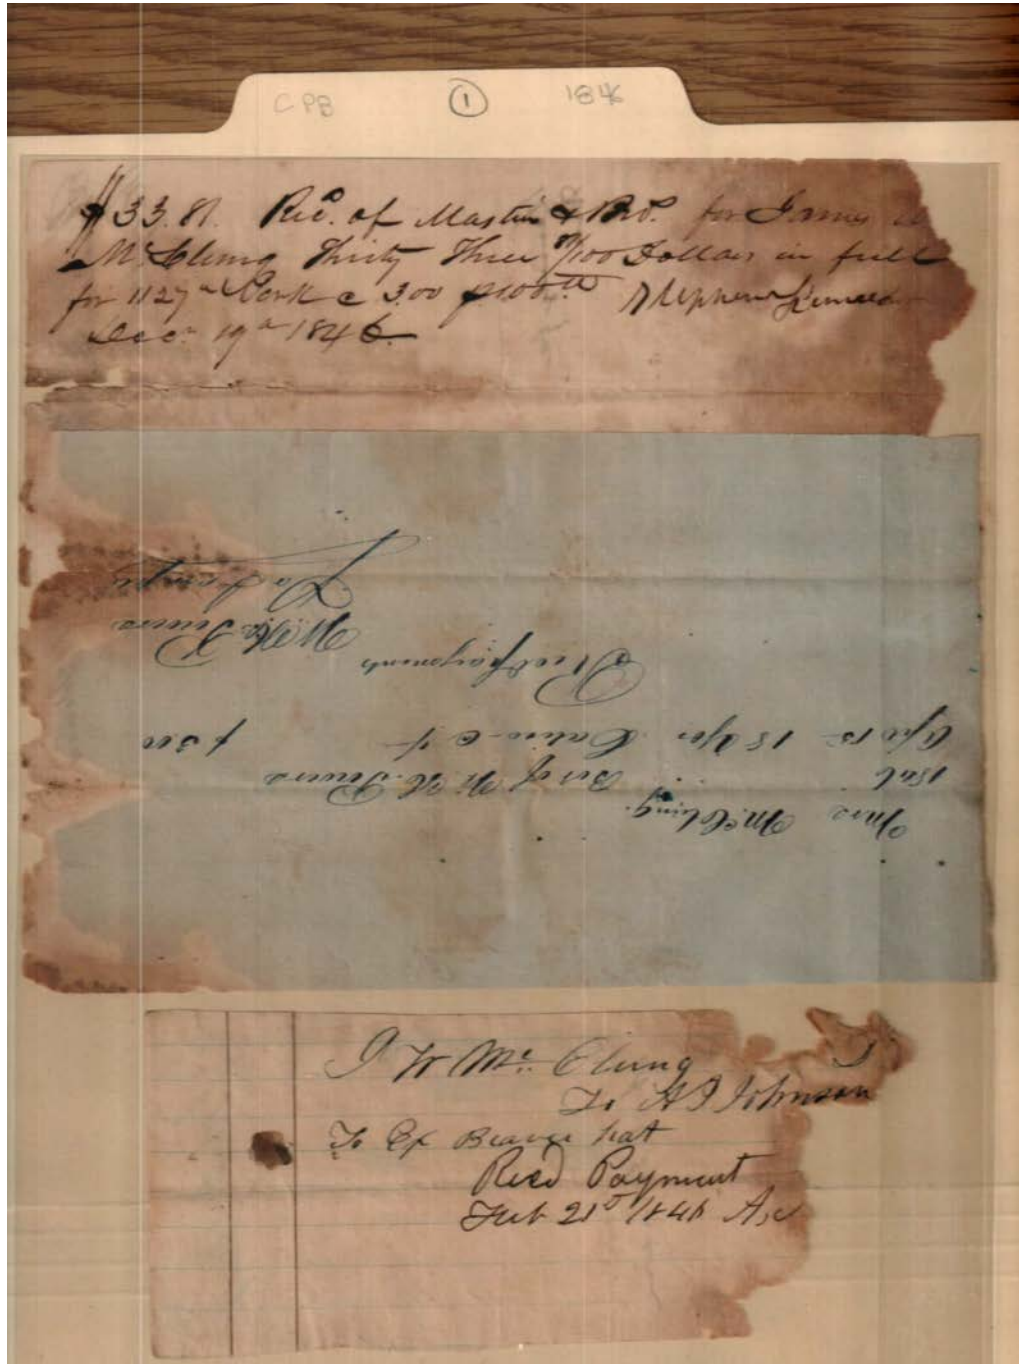 CPB 1 1846
$33.81. Recd. of Mastin & Bro. for James W
McClung Thirty Three 81/100 Dollars in full
for 1127 lb Pork @ 3.00 p 100 lb Stephen
Decr 19th 1846
Mrs McClung
1846 Bot of W. H. Powers
Apl 15 15 Yds Calico @ $3.00
Recd payment
W. H. Powers
J W McClung
To A J Johnson
To Ex Beaver hat
Recd Payment
Feb 21st 1846 A,J